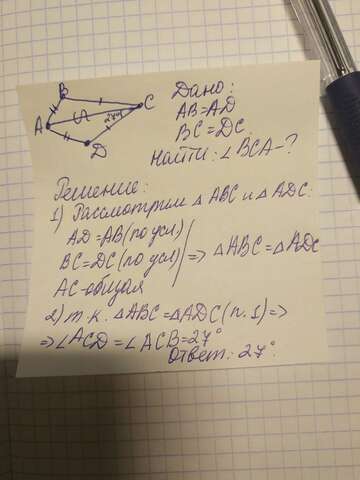 B
C
A
27°
D
Дано:
AB=AD
BC=DC.
Найти: ∠BCA-?
Решение:
1) Рассмотрим △ABC и △ADC:
AD=AB(по усл)
BC=DC(по усл) => △ABC=△ADC
AC-общая
2) т.к. △ABC=△ADC(п.1)=>
=> ∠ACD=∠ACB=27°
Ответ: 27°.